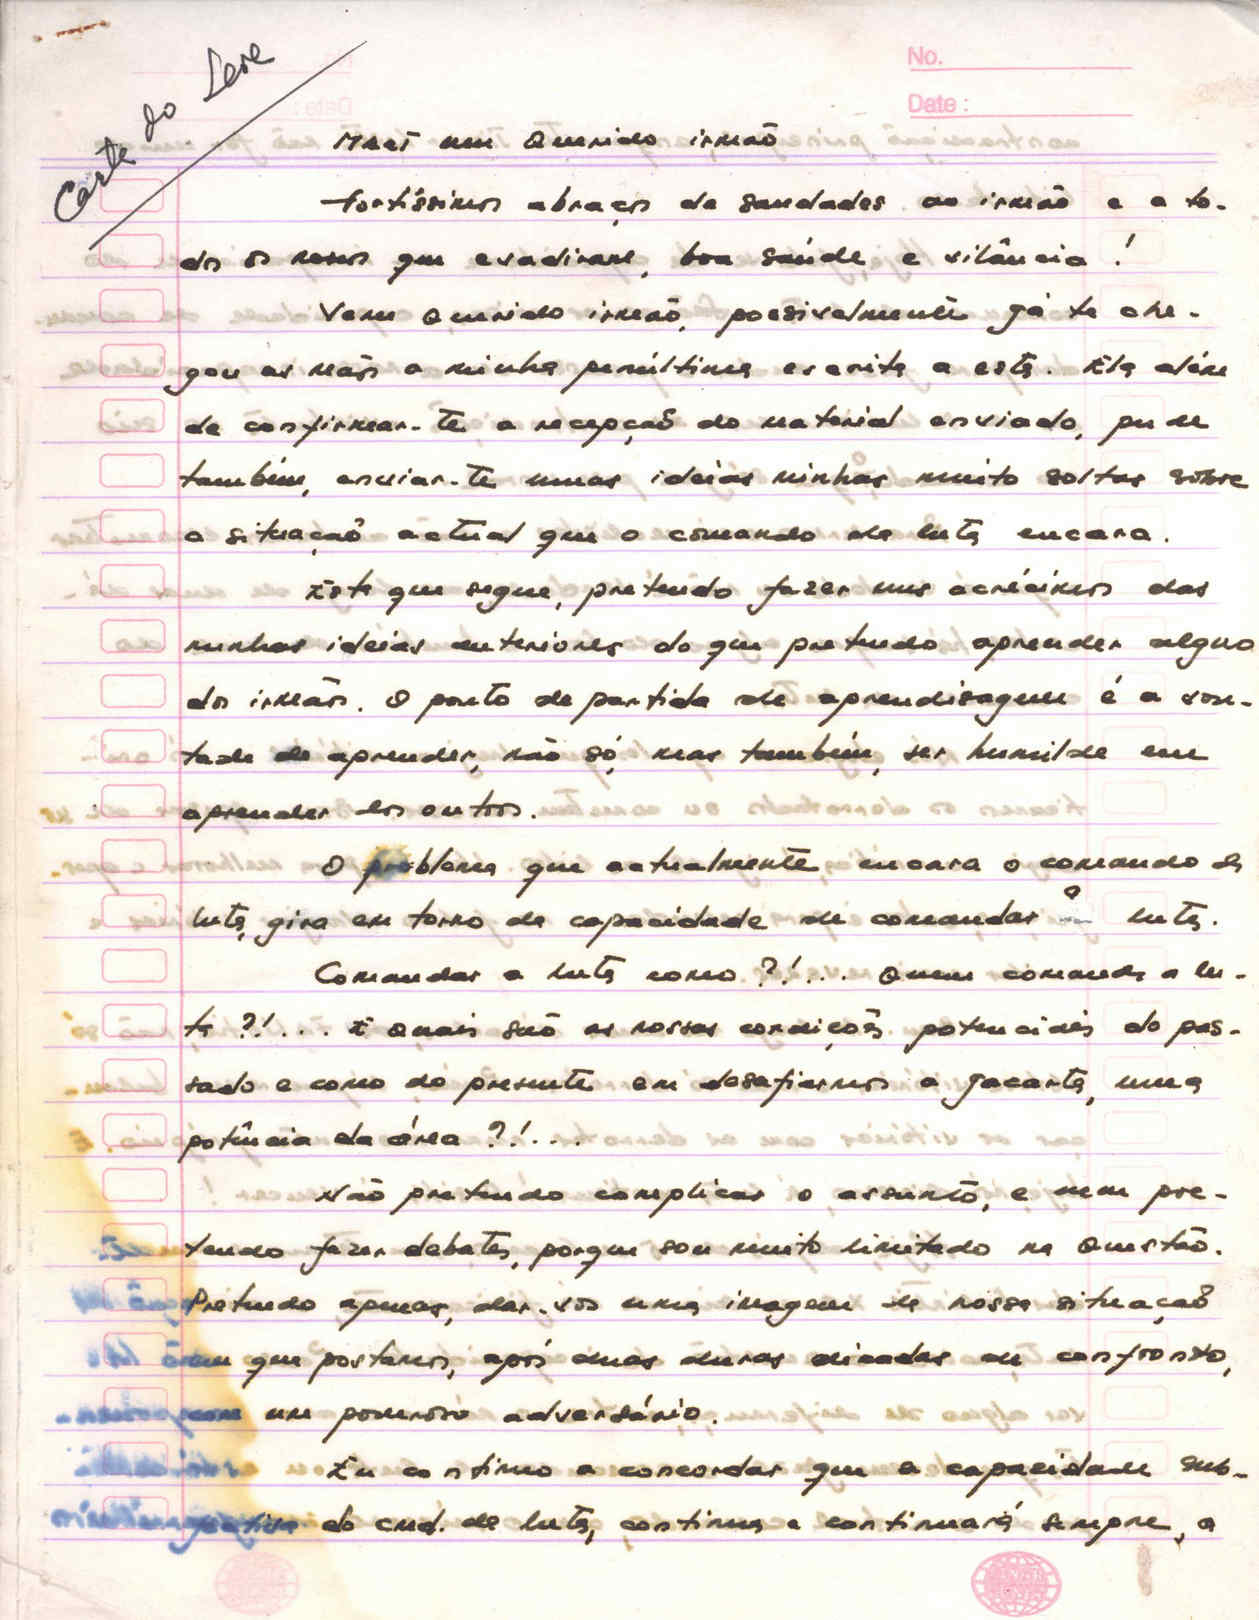 Carta do Lere
No.
Date :
Maet um Querido irmão
fortíssimos abraços de saudades ao irmão e a to-
dos os nosos que evadirane, boa saúde e vilância !
Vem Querido irmão, possivelmente já te che-
gou as mãos a minha penúltima escrita a esta. Ela além
de confirmar-te a recepção do material enviado, pude
também, enviar-te umas ideias minhas muito soltas sobre
a situação actual que o comando de luta encara.
Este que segue, pretendo fazer uns acrécimos das
minhas ideias anteriores do que pretendo aprender alguo
dos irmãos. O ponto de partida de aprendisagem é a von-
tade de aprender, não só, mas também, ser humilde em
aprender dos outros.
O problema que actualmente encara o comando de
luta, gira em torno de capacidade de comandar a luta.
Comandar a luta como ?!... Quem comanda a lu-
ta ?!... E Quais são as nossas condições potenciais do pas-
sado e como do presente em desafiarmos a Jacarta, uma
potência da área ?!...
Não pretendo complicar o assunto, e nem pre-
tendo fazer debates, porque sou muito limitado na Questão.
Pretendo apenas, dar-vos uma imagem de nossa situação
em que postamos, após duas duras dicadas de confronto,
com um poderoso adversário.
Eu continuo a concordar que a capacidade sub-
jectiva do cmd. de luta, continua e continuará sempre, a